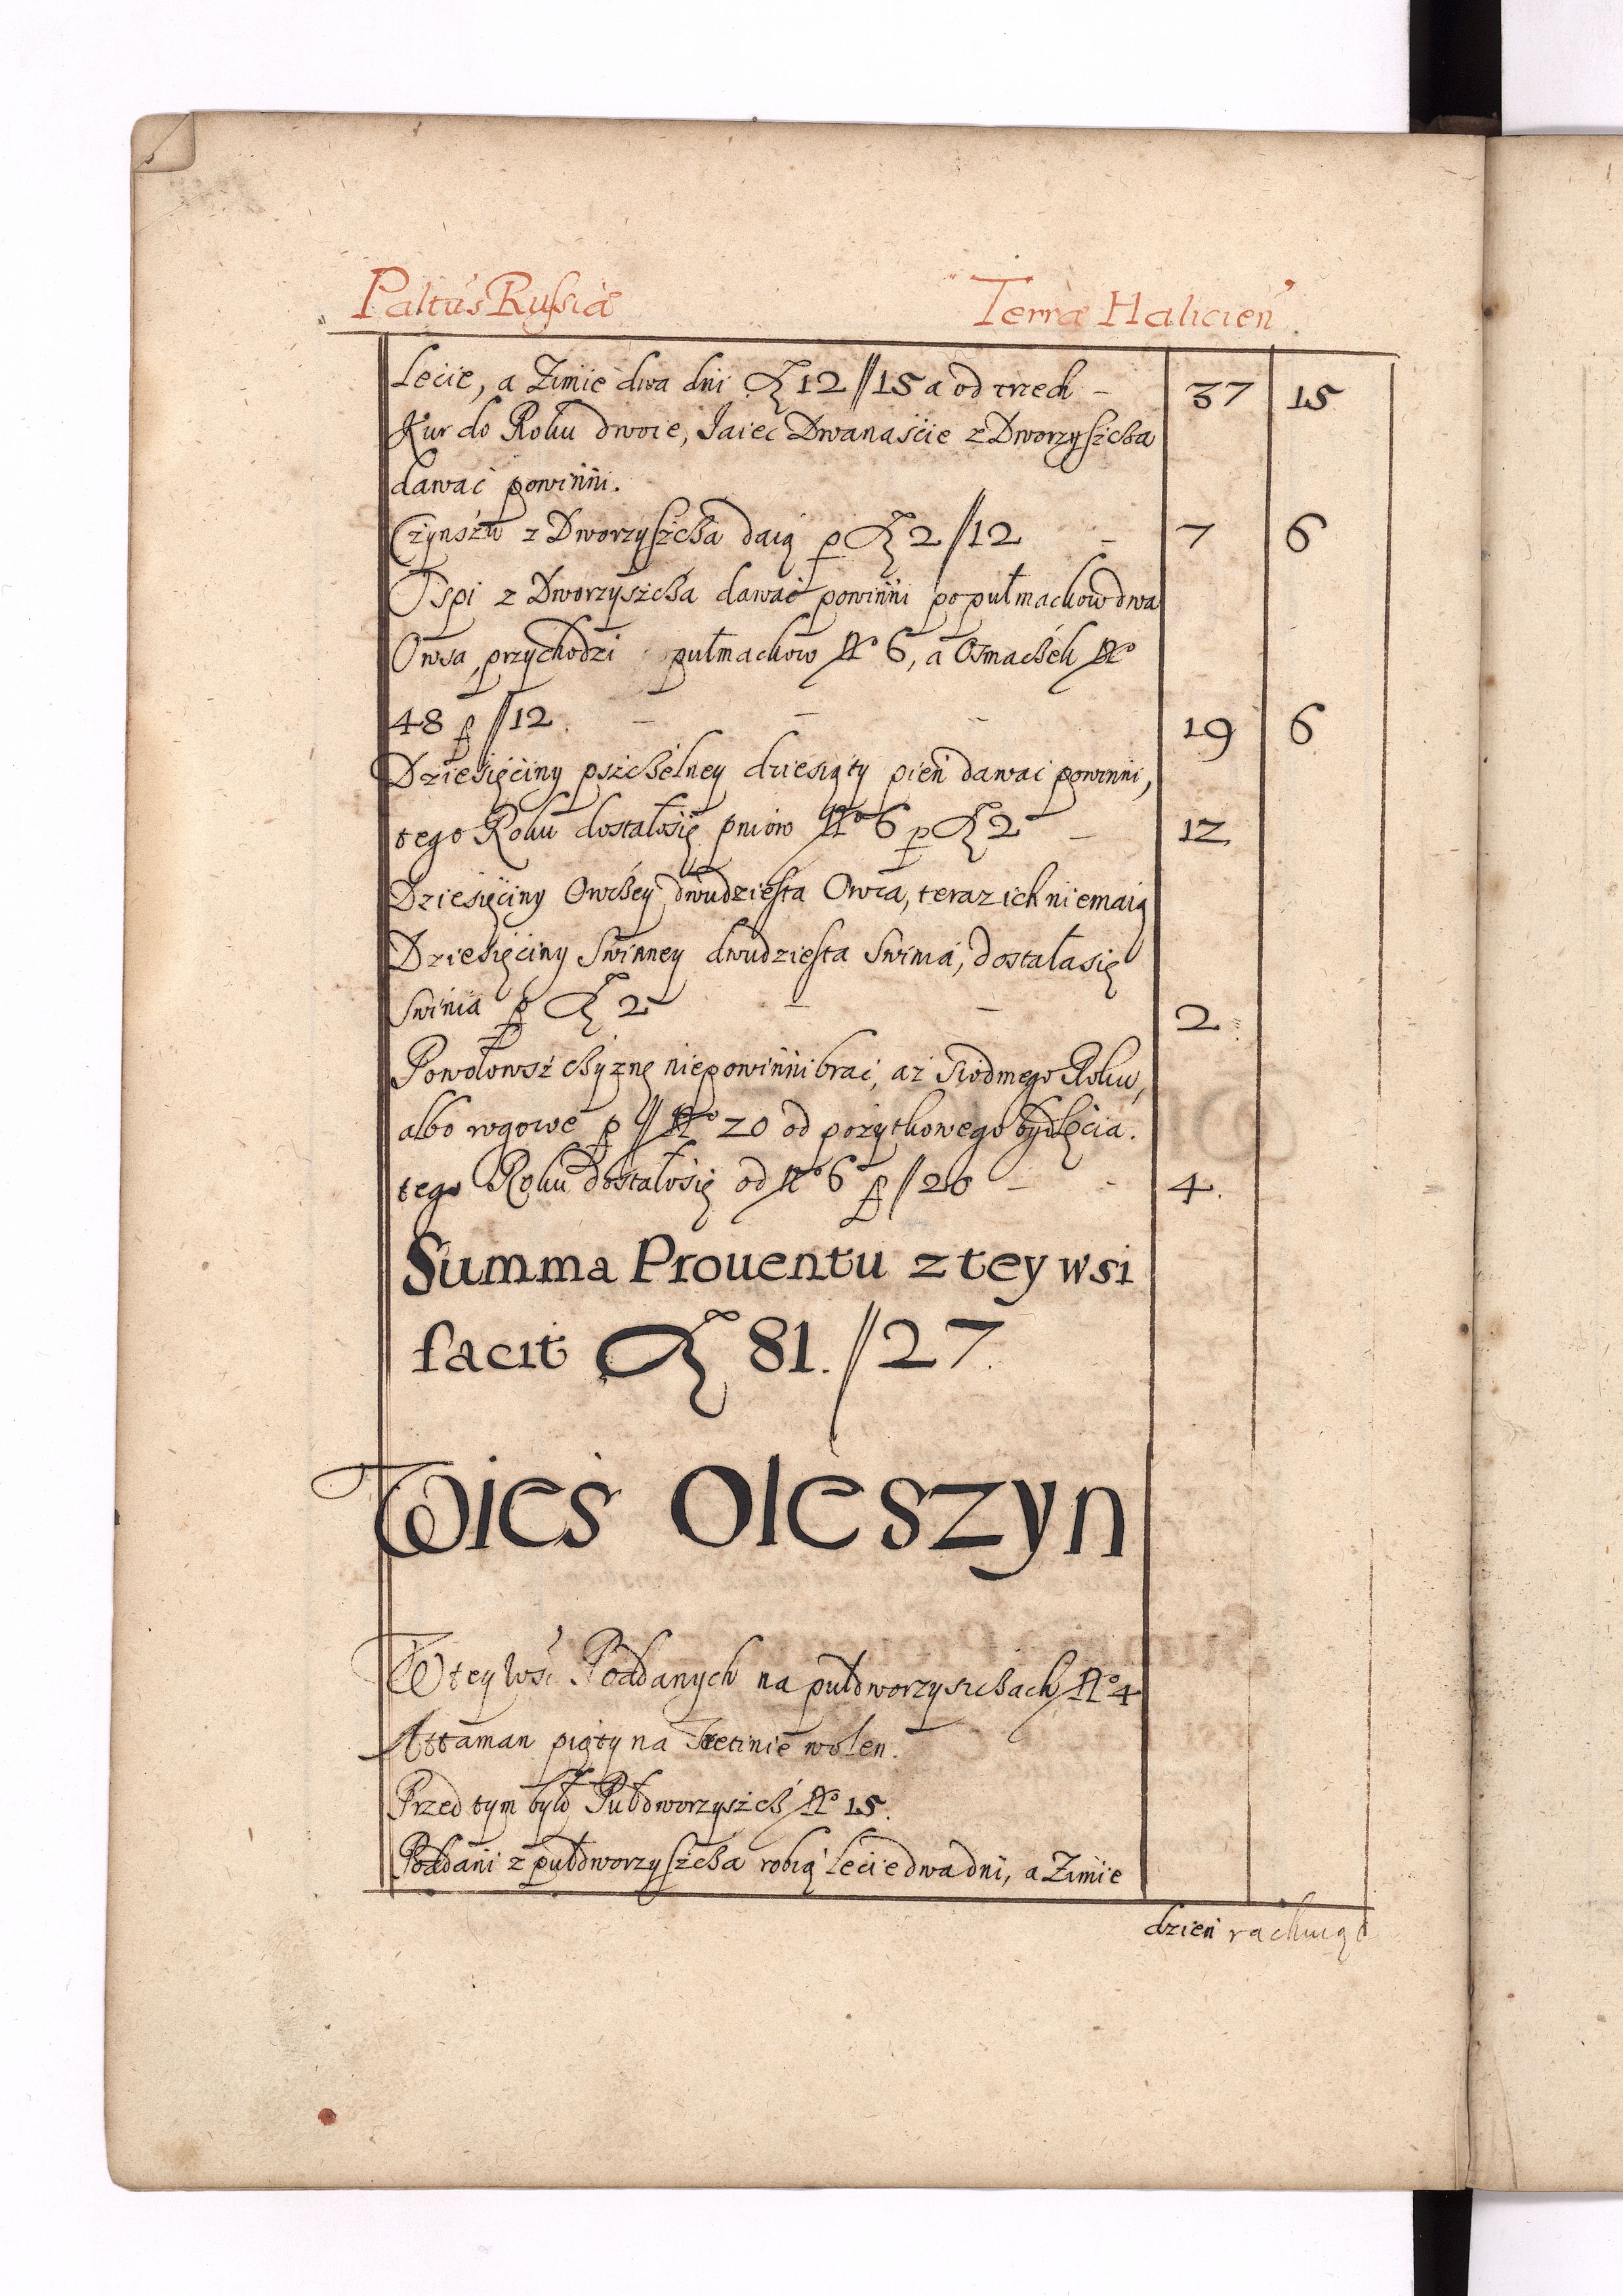 Paltus Russiæ Terræ Halicien
Lecie, a Zimie dwa dni fl 12 // 15 a od trzech – 37 15
Kur do Roku dwoie, Jaiec Dwanaście z Dworzyszcza
dawać powinni.
Czynszu z Dworzyszcza daią p fl 2 // 12 – 7 6
Ospi z Dworzyszcza dawać powinni po pułmackow dwa
Owsa, przychodzi pułmackow No 6, a Osmaczek No
48 p // 12. – – – 19 6
Dziesięciny pszczelney dziesiąty pień dawać powinni,
tego Roku dostałosię pniow No 6 p fl 2 – 12
Dziesięciny Owczey dwudziesta Owca, teraz ich niemaią
Dziesięciny Swinney dwudziesta Swinia, dostałasię
Swinia p fl 2 – – 2
Powołowszczyznę niepowinni brać, aż Siodmego Roku,
albo rogowe p // No 20 od pożytkowego bydlęcia.
tego Roku dostałosię od No 6 p // 20 – – 4.
Summa Prouentu z tey wsi
facit fl 81. // 27.
Wieś Oleszyn
W tey Wsi Poddanych na pułdworzyszczach No 4
Attaman piąty na Tretinie wolen.
Przed tym było Pułdworzyszcz No 15.
Poddani z pułdworzyszcza robią lecie dwa dni, a Zimie
dzień rachuiąc